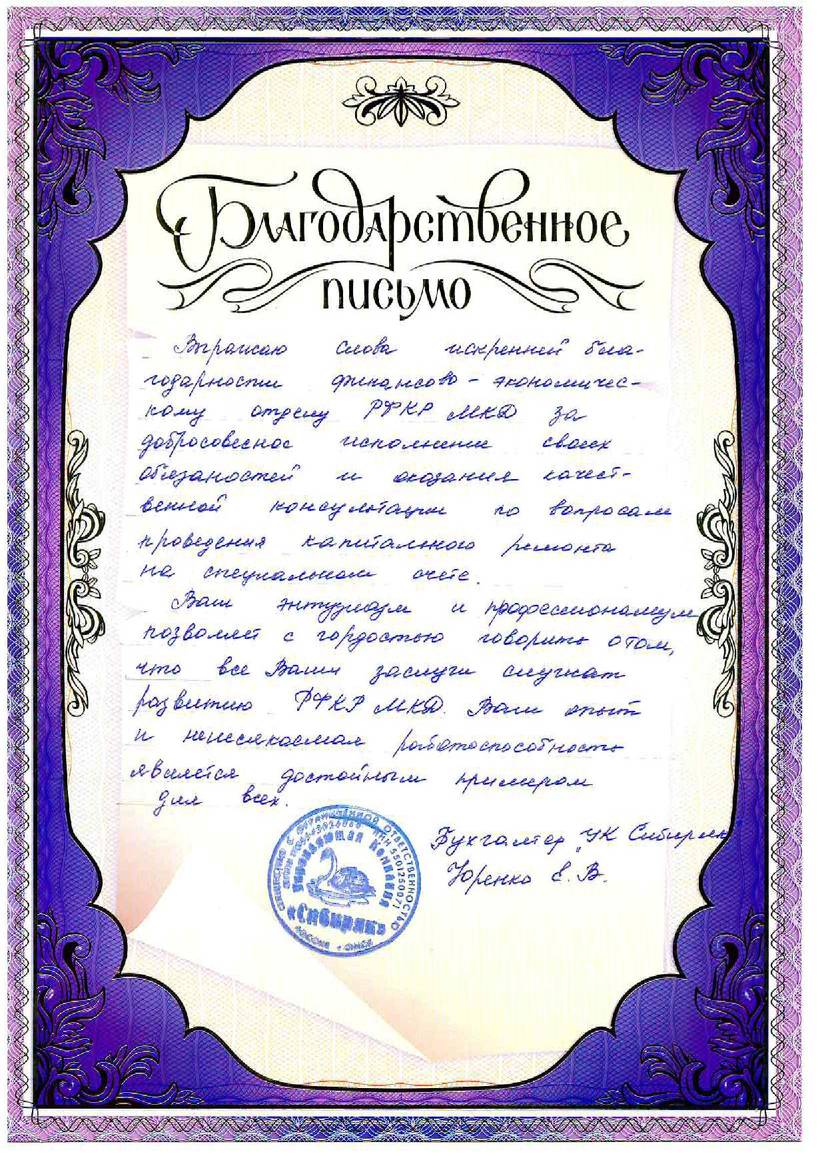 Благодарственное
письмо
Выражаю слова искренней бла-
годарности финансово-экономичес-
кому отделу РФКР МКД за
добросовесное исполнение своих
обязаностей и оказания качест-
венной консультации по вопросам
проведения капитального ремонта
на специальном счете.
Ваш энтузиазм и профессионализм
позволяет с гордостью говорить о том,
что все Ваши заслуги служат
развитию РФКР МКД. Ваш опыт
и неиссякаемая работоспособность
является достойным примером
для всех.
Бухгалтер "УК Сибиряк"
Юренко Е. В.
ОБЩЕСТВО С ОГРАНИЧЕННОЙ ОТВЕТСТВЕННОСТЬЮ
ИНН 5501250071
Управляющая Компания
«Сибиряк»
РОССИЯ ОМСК